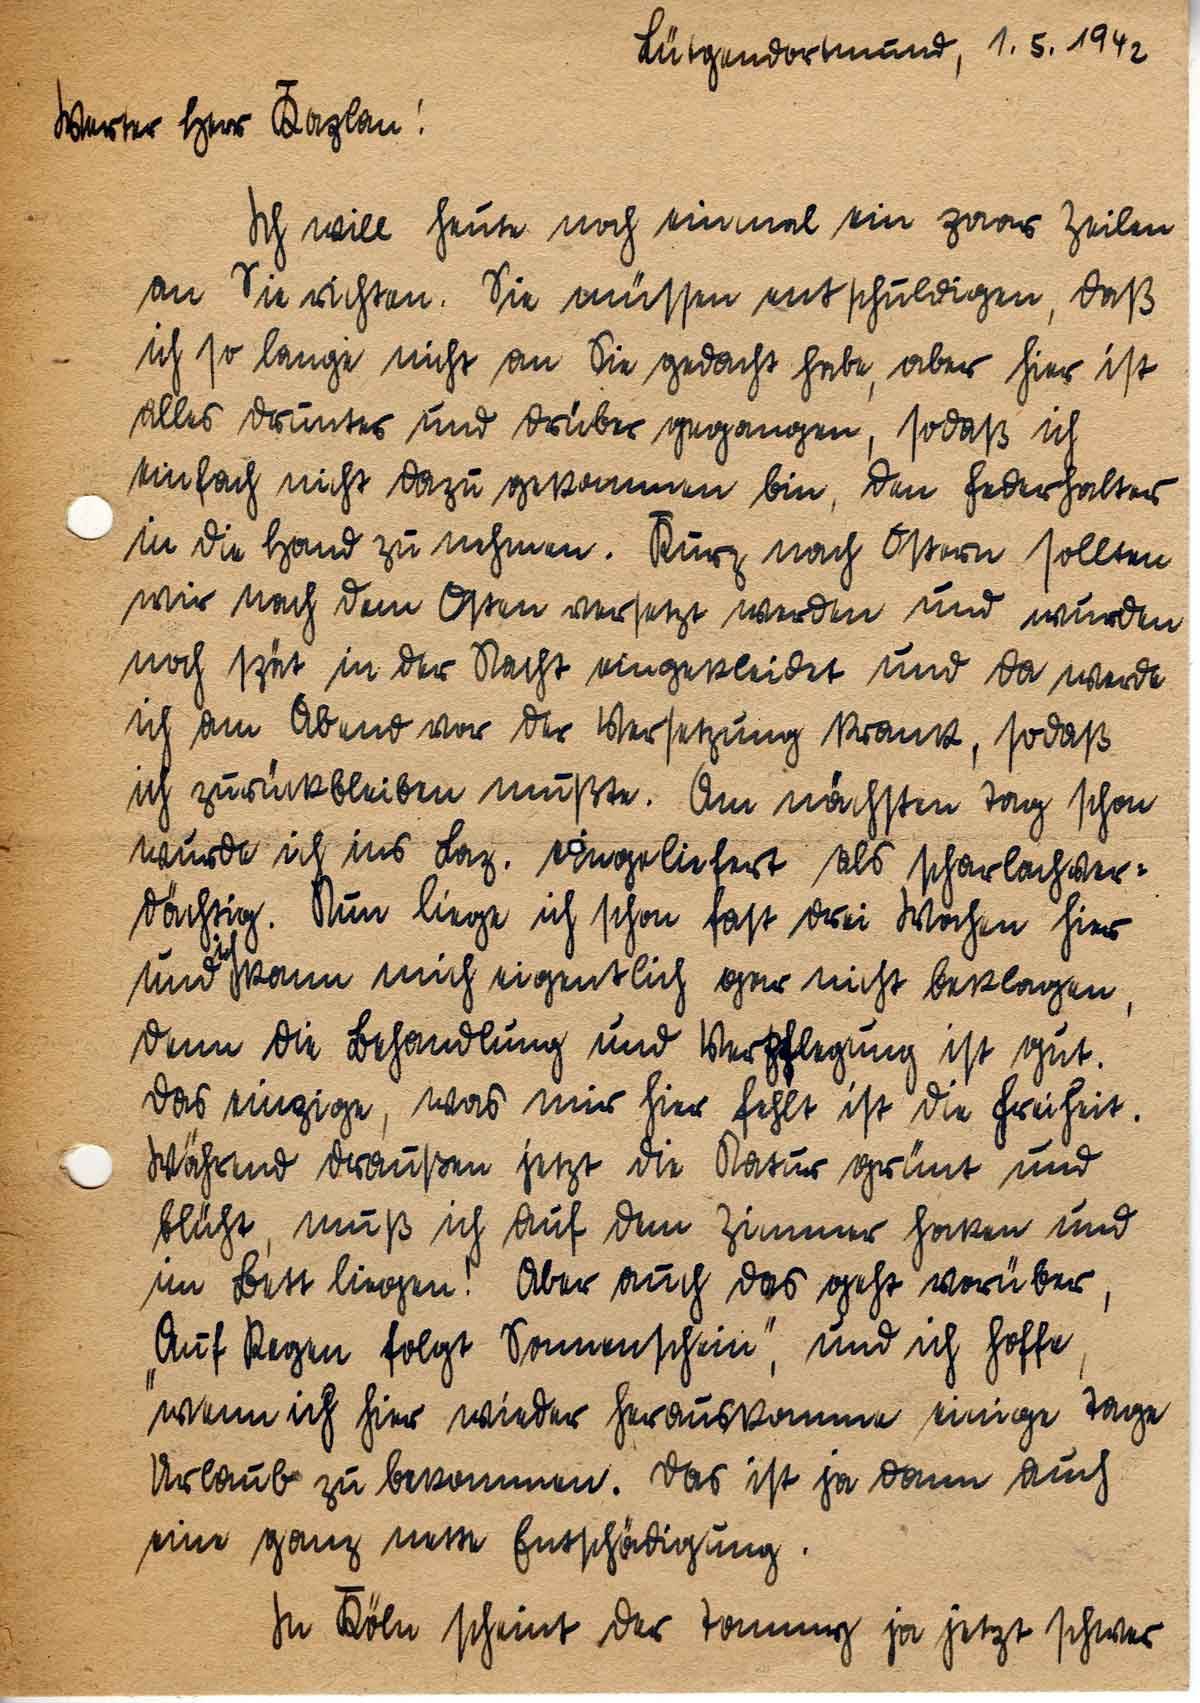 Lütgendortmund, 1.5.1942
Werter Herr Kaplan!
Ich will heute noch einmal ein paar Zeilen
an Sie richten. Sie müssen entschuldigen, daß
ich so lange nicht an Sie gedacht habe, aber hier ist
alles drunter und drüber gegangen, sodaß ich
einfach nicht dazu gekommen bin, den Federhalter
in die Hand zu nehmen. Kurz nach Ostern sollten
wir nach dem Osten versetzt werden und wurden
noch spät in der Nacht eingekleidet und da werde
ich am Abend vor der Versetzung krank, sodaß
ich zurückbleiben mußte. Am nächsten Tag schon
wurde ich ins Laz. eingeliefert als scharlachver-
dächtig. Nun liege ich schon fast drei Wochen hier
und ich kann mich eigentlich gar nicht beklagen,
denn die Behandlung und Verpflegung ist gut.
Das einzige, was mir hier fehlt ist die Freiheit.
Während draußen jetzt die Natur grünt und
blüht, muß ich auf dem Zimmer haken und
im Bett liegen! Aber auch das geht vorüber,
„Auf Regen folgt Sonnenschein", und ich hoffe,
wenn ich hier wieder herauskomme einige Tage
Urlaub zu bekommen. Das ist ja dann auch
eine ganz nette Entschädigung.
In Köln scheint der Tommy ja jetzt schwer